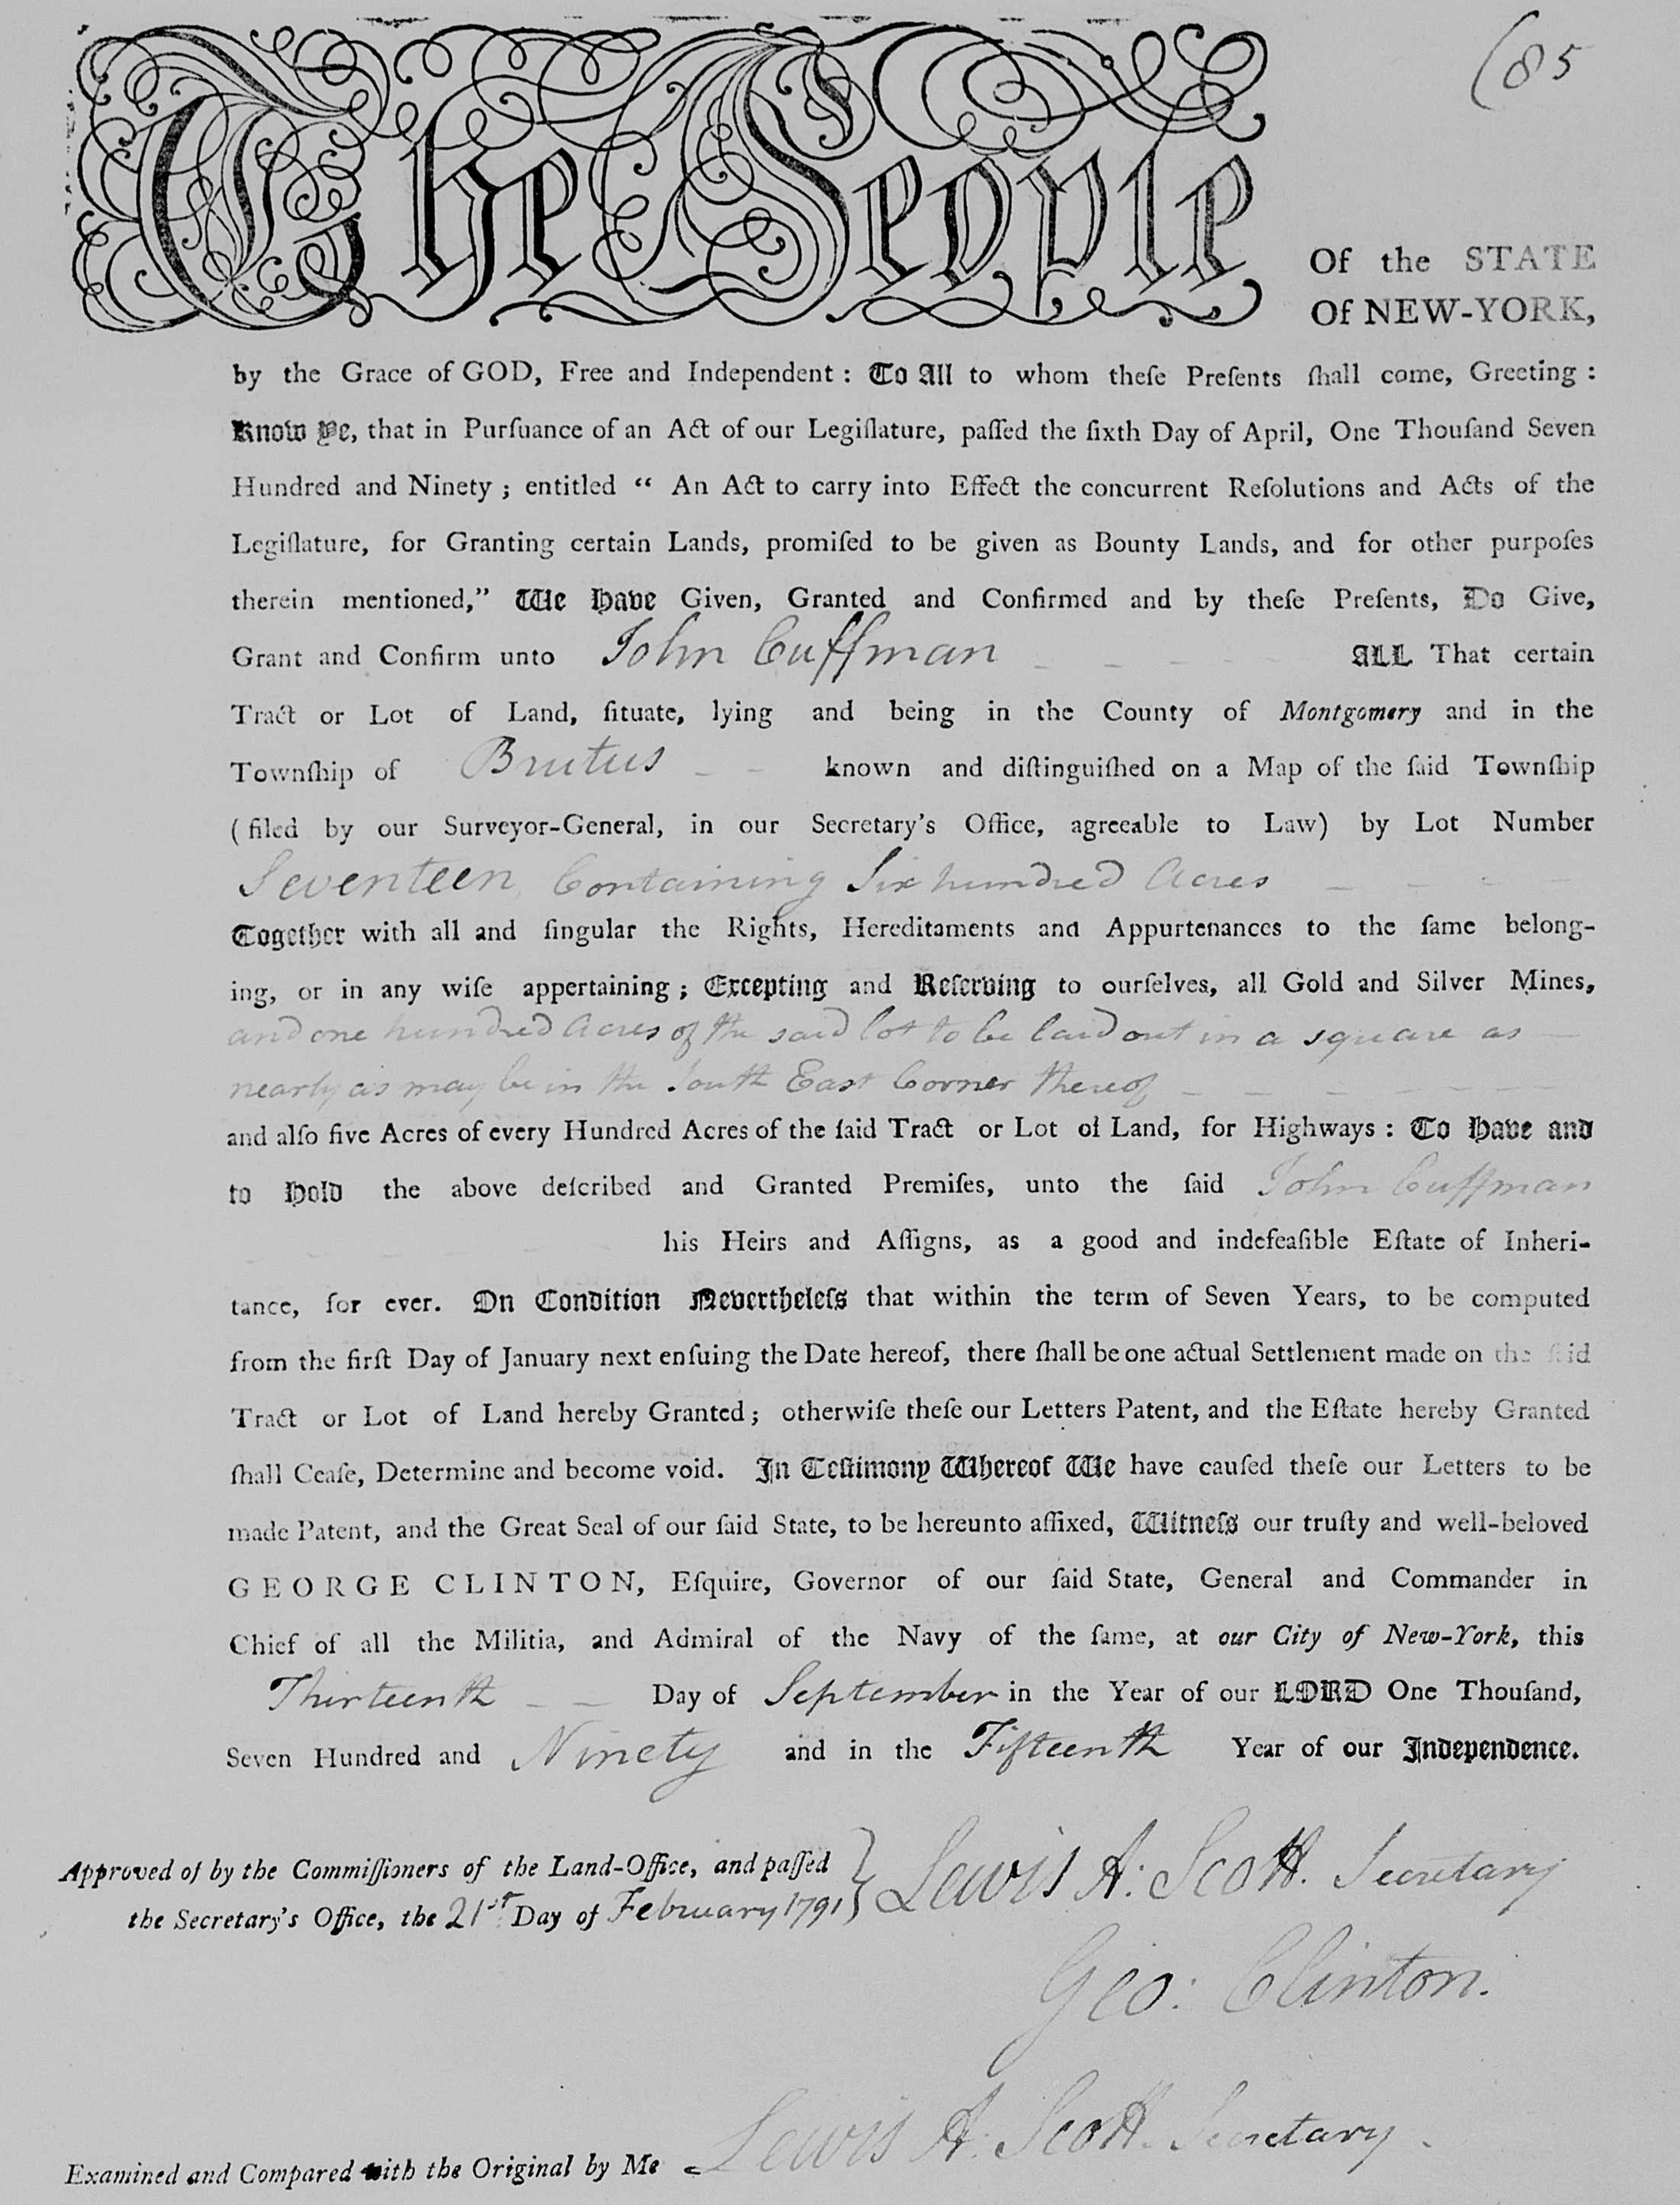 (85
The People
Of the STATE
Of NEW-YORK,
by the Grace of GOD, Free and Independent: To All to whom theſe Preſents ſhall come, Greeting:
Know Ye, that in Purſuance of an Act of our Legiſlature, paſſed the ſixth Day of April, One Thouſand Seven
Hundred and Ninety; entitled “ An Act to carry into Effect the concurrent Reſolutions and Acts of the
Legiſlature, for Granting certain Lands, promiſed to be given as Bounty Lands, and for other purpoſes
therein mentioned,” We Have Given, Granted and Confirmed and by theſe Preſents, Do Give,
Grant and Confirm unto John Cuffman ALL That certain
Tract or Lot of Land, ſituate, lying and being in the County of Montgomery and in the
Townſhip of Brutus known and diſtinguiſhed on a Map of the ſaid Townſhip
(filed by our Surveyor-General, in our Secretary's Office, agreeable to Law) by Lot Number
Seventeen Containing Six hundred Acres
Together with all and ſingular the Rights, Hereditaments and Appurtenances to the ſame belong-
ing, or in any wiſe appertaining; Excepting and Reſerving to ourſelves, all Gold and Silver Mines,
and one hundred Acres of the said lot to be laid out in a square as
nearly as may be in the South East Corner thereof
and alſo five Acres of every Hundred Acres of the ſaid Tract or Lot of Land, for Highways: To Have and
to Hold the above deſcribed and Granted Premiſes, unto the ſaid John Cuffman
his Heirs and Aſſigns, as a good and indefeaſible Eſtate of Inheri-
tance, for ever. On Condition Nevertheleſs that within the term of Seven Years, to be computed
from the firſt Day of January next enſuing the Date hereof, there ſhall be one actual Settlement made on the ſaid
Tract or Lot of Land hereby Granted; otherwiſe theſe our Letters Patent, and the Eſtate hereby Granted
ſhall Ceaſe, Determine and become void. In Teſtimony Whereof We have cauſed theſe our Letters to be
made Patent, and the Great Seal of our ſaid State, to be hereunto affixed, Witneſs our truſty and well-beloved
GEORGE CLINTON, Eſquire, Governor of our ſaid State, General and Commander in
Chief of all the Militia, and Admiral of the Navy of the ſame, at our City of New-York, this
Thirteenth Day of September in the Year of our LORD One Thouſand,
Seven Hundred and Ninety and in the Fifteenth Year of our Independence.
Approved of by the Commiſſioners of the Land-Office, and paſſed
the Secretary's Office, the 21st Day of February 1791 } Lewis A: Scott. Secretary
Geo: Clinton.
Examined and Compared with the Original by Me Lewis A: Scott. Secretary.